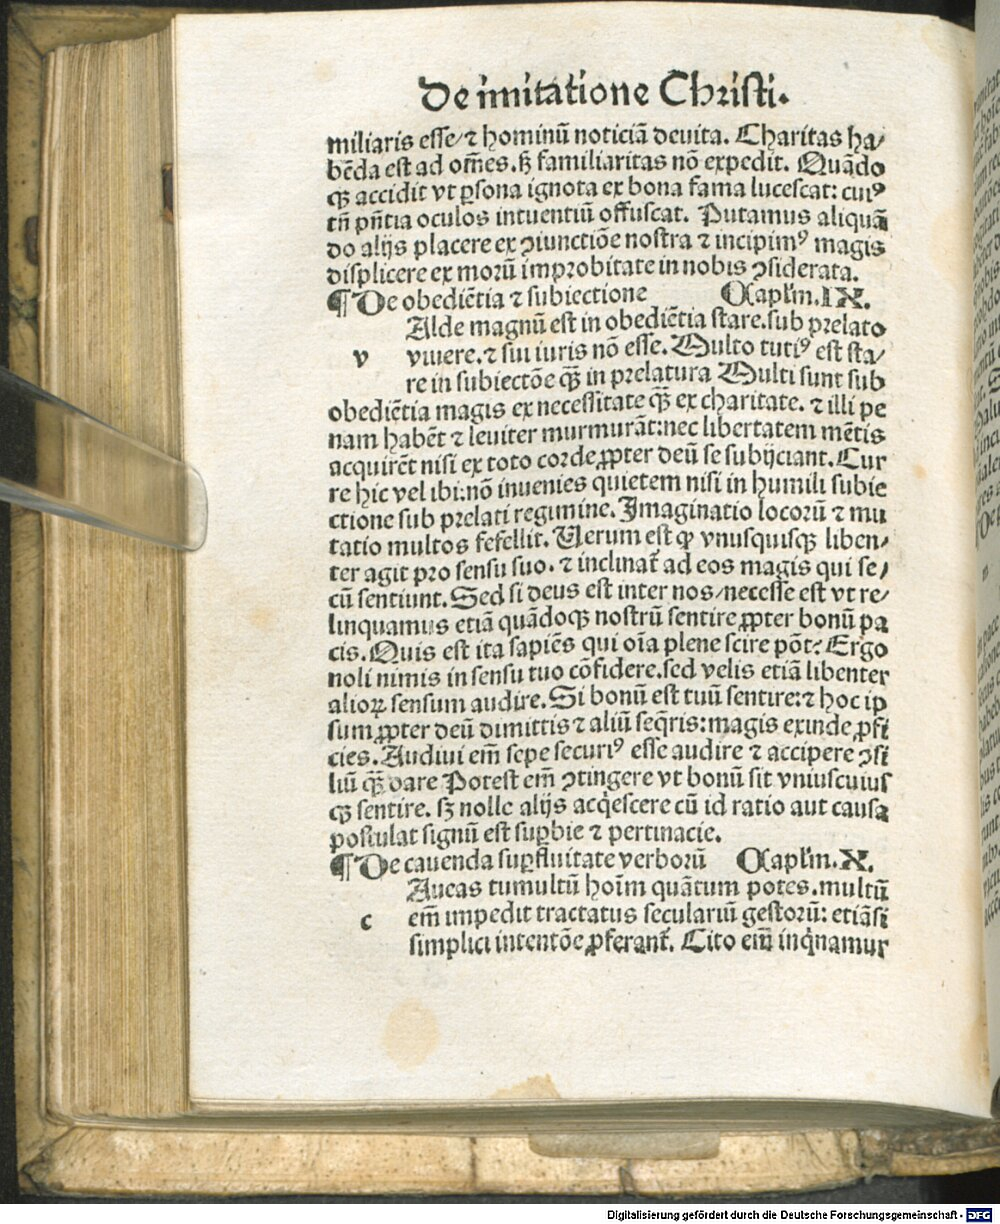 De imitatione Christi.
miliaris esse/⁊ hominū noticiā deuita. Charitas ha/
bēda est ad om̄es. sꝫ familiaritas nō expedit. Quādo
qꝫ accidit vt ꝑsona ignota ex bona fama lucescat: cuiꝰ
tn̄ pn̄tia oculos intuentiū offuscat. Putamus aliquā
do alijs placere ex ꝯiunctiōe nostra ⁊ incipimꝰ magis
displicere ex morū improbitate in nobis ꝯsiderata.
¶ De obediētia ⁊ subiectione Caplm. IX.
Alde magnū est in obediētia stare. sub prelato
v viuere. ⁊ sui iuris nō esse. Multo tutiꝰ est sta/
re in subiectōe qꝫ in prelatura Multi sunt sub
obediētia magis ex necessitate qꝫ ex charitate. ⁊ illi pe
nam habēt ⁊ leuiter murmurāt: nec libertatem mētis
acquirēt nisi ex toto corde ꝓpter deū se subijciant. Cur
re hic vel ibi: nō inuenies quietem nisi in humili subie
ctione sub prelati regimine. Imaginatio locorū ⁊ mu
tatio multos fefellit. Uerum est ꝙ vnusquisqꝫ liben/
ter agit pro sensu suo. ⁊ inclinat̄ ad eos magis qui se/
cū sentiunt. Sed si deus est inter nos/necesse est vt re/
linquamus etiā quādoqꝫ nostrū sentire ꝓpter bonū pa
cis. Quis est ita sapiēs qui oīa plene scire pōt: Ergo
noli nimis in sensu tuo cōfidere. sed velis etiā libenter
alioꝝ sensum audire. Si bonū est tuū sentire: ⁊ hoc ip
sum ꝓpter deū dimittis ⁊ aliū seq̄ris: magis exinde ꝓfi
cies. Audiui em̄ sepe securiꝰ esse audire ⁊ accipere ꝯsi
liū qꝫ dare Potest em̄ ꝯtingere vt bonū sit vniuscuius
qꝫ sentire. sꝫ nolle alijs acq̄escere cū id ratio aut causa
postulat signū est suꝑbie ⁊ pertinacie.
¶ De cauenda suꝑfluitate verborū Caplm. X.
Aueas tumultū hoīm quātum potes. multū
c em̄ impedit tractatus seculariū gestorū: etiāsi
simplici intentōe ꝓferant̄. Cito em̄ inq̇namur
Digitalisierung gefördert durch die Deutsche Forschungsgemeinschaft - DFG